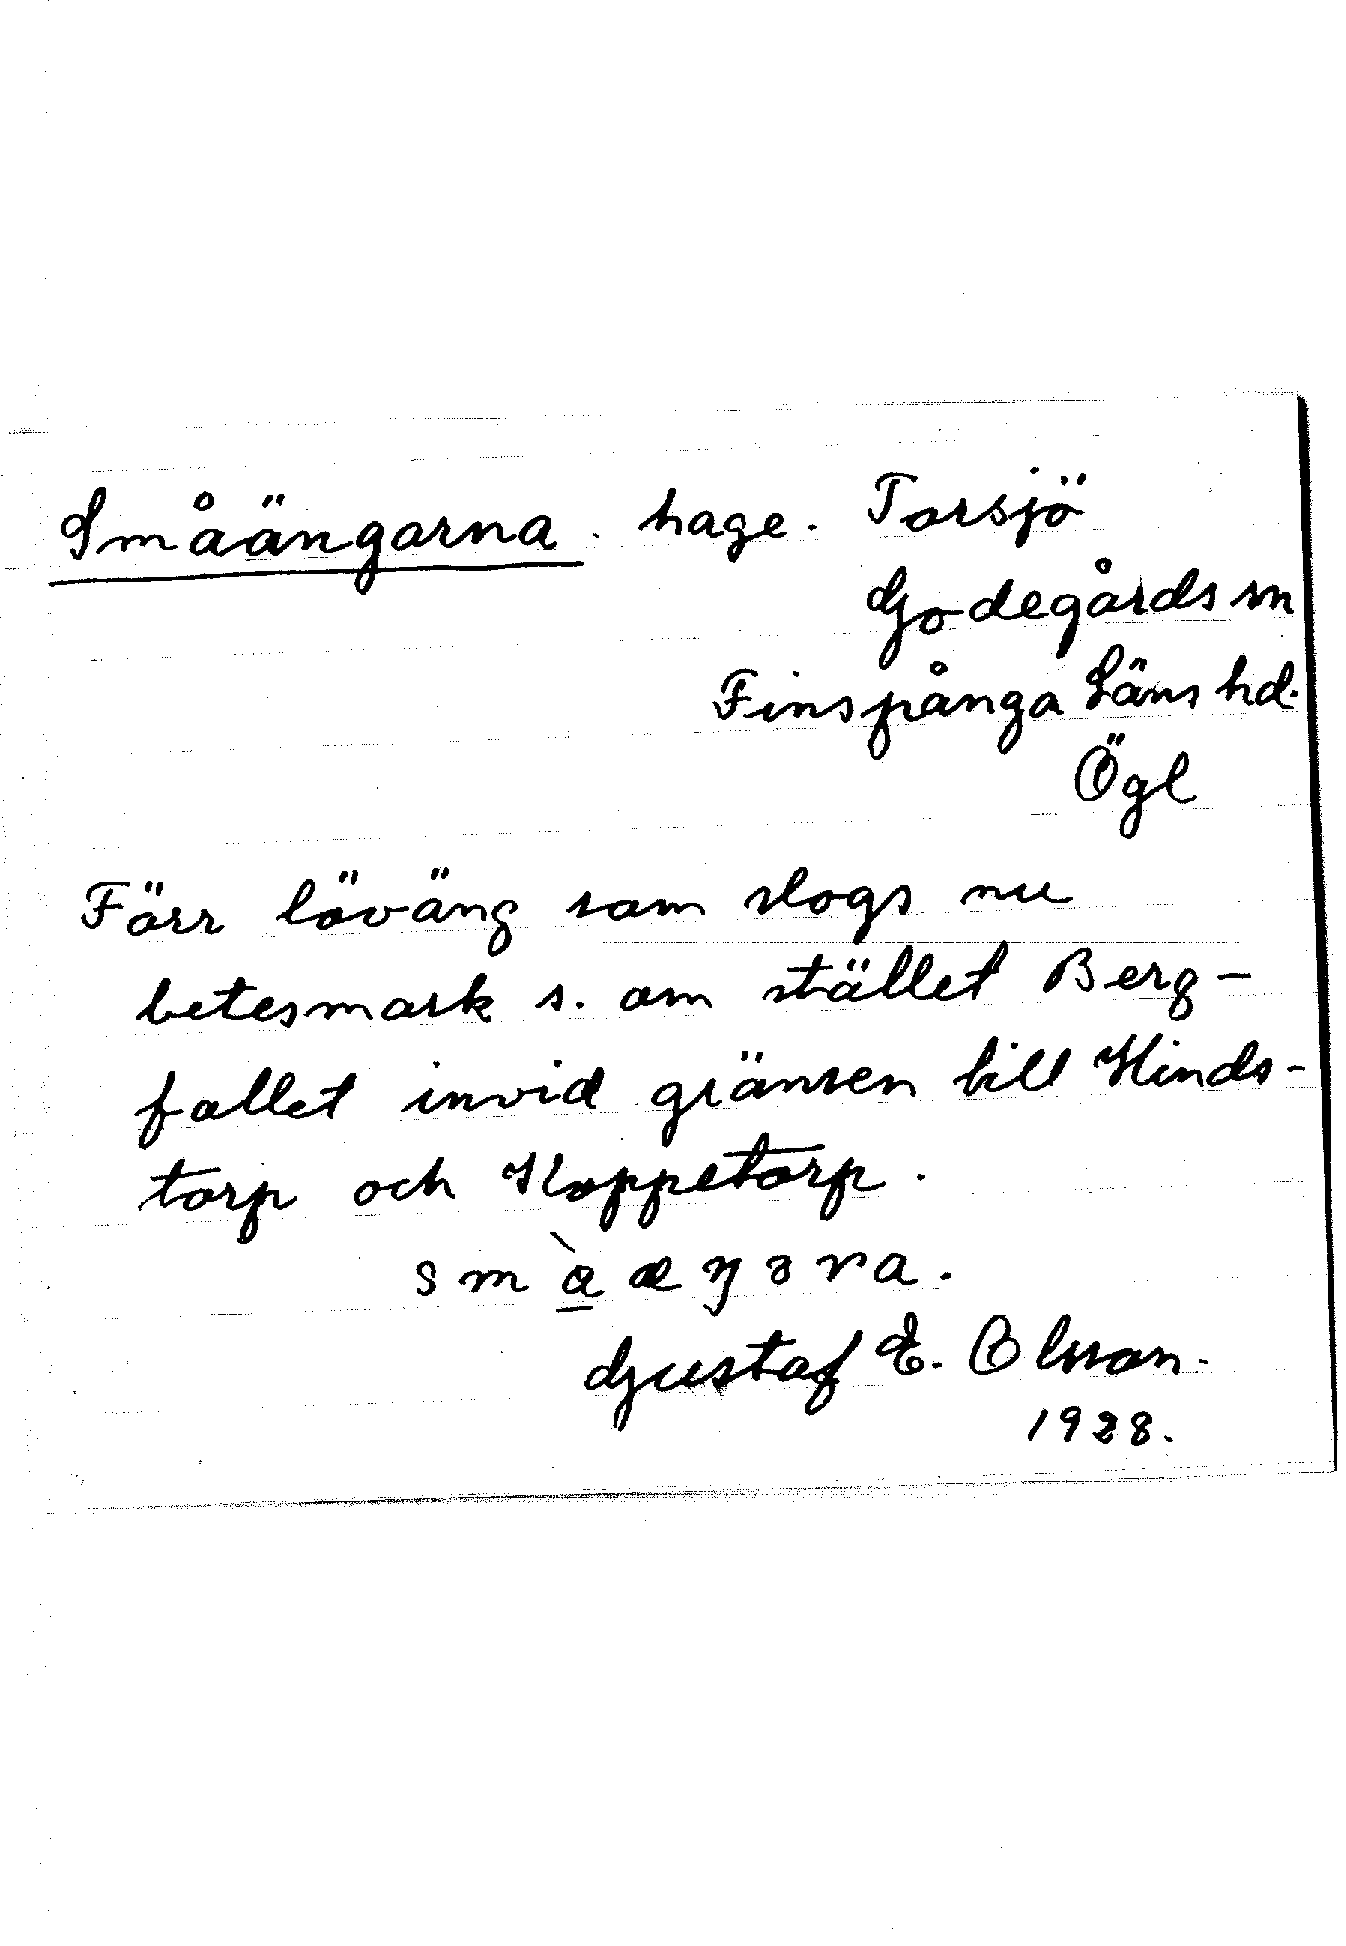 Småängarna. hage. Torsjö
Godegårds sn
Finspånga Läns hd.
Ögl
Förr löväng som slogs nu
betesmark s. om stället Berg-
fallet invid gränsen till Hinds-
torp och Koppetorp.
smàæŋɜra.
Gustaf E. Olsson.
1928.